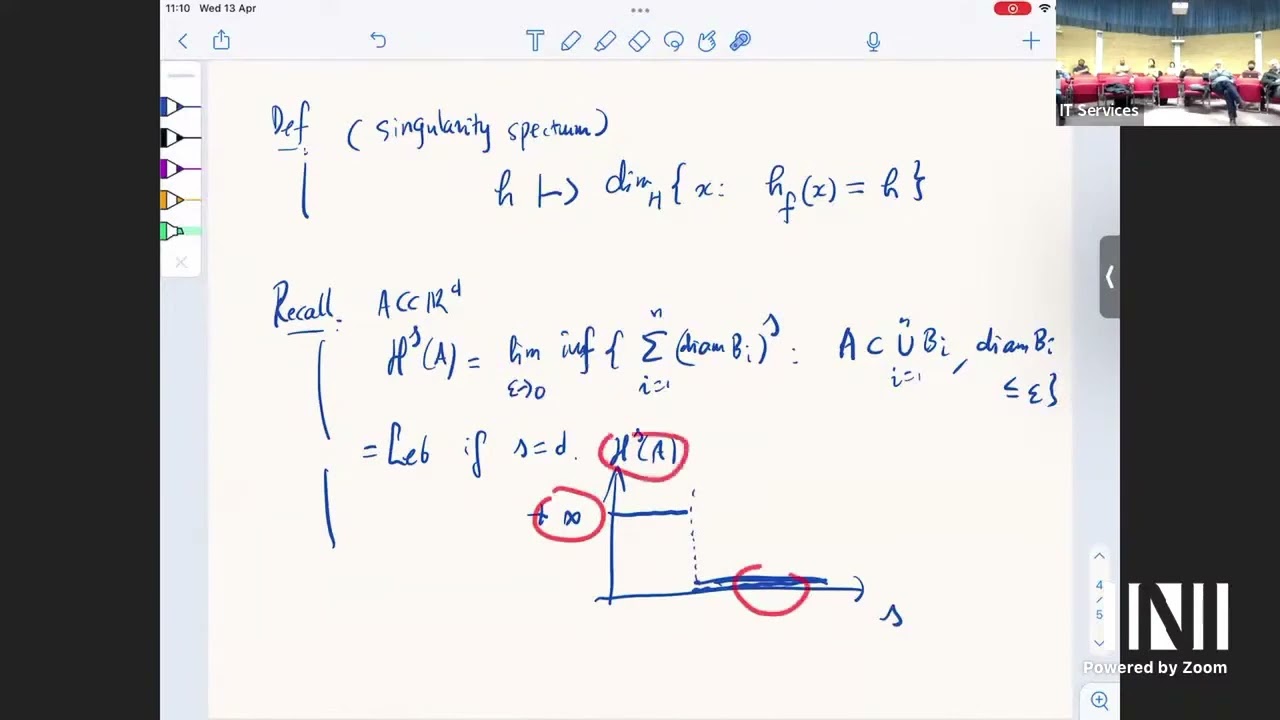 11:10 Wed 13 Apr
IT Services
Def (singularity spectrum)
h ↦ dim_H { x : h_f(x) = h }
Recall. A ⊂⊂ ℝ^d
H^s(A) = lim_{ε→0} inf { Σ_{i=1}^{n} (diam B_i)^s : A ⊂ ∪_{i=1}^{n} B_i, diam B_i ≤ ε }
= Leb if s=d. H^s(A)
+ ∞
s
4
/
5
INI
Powered by Zoom